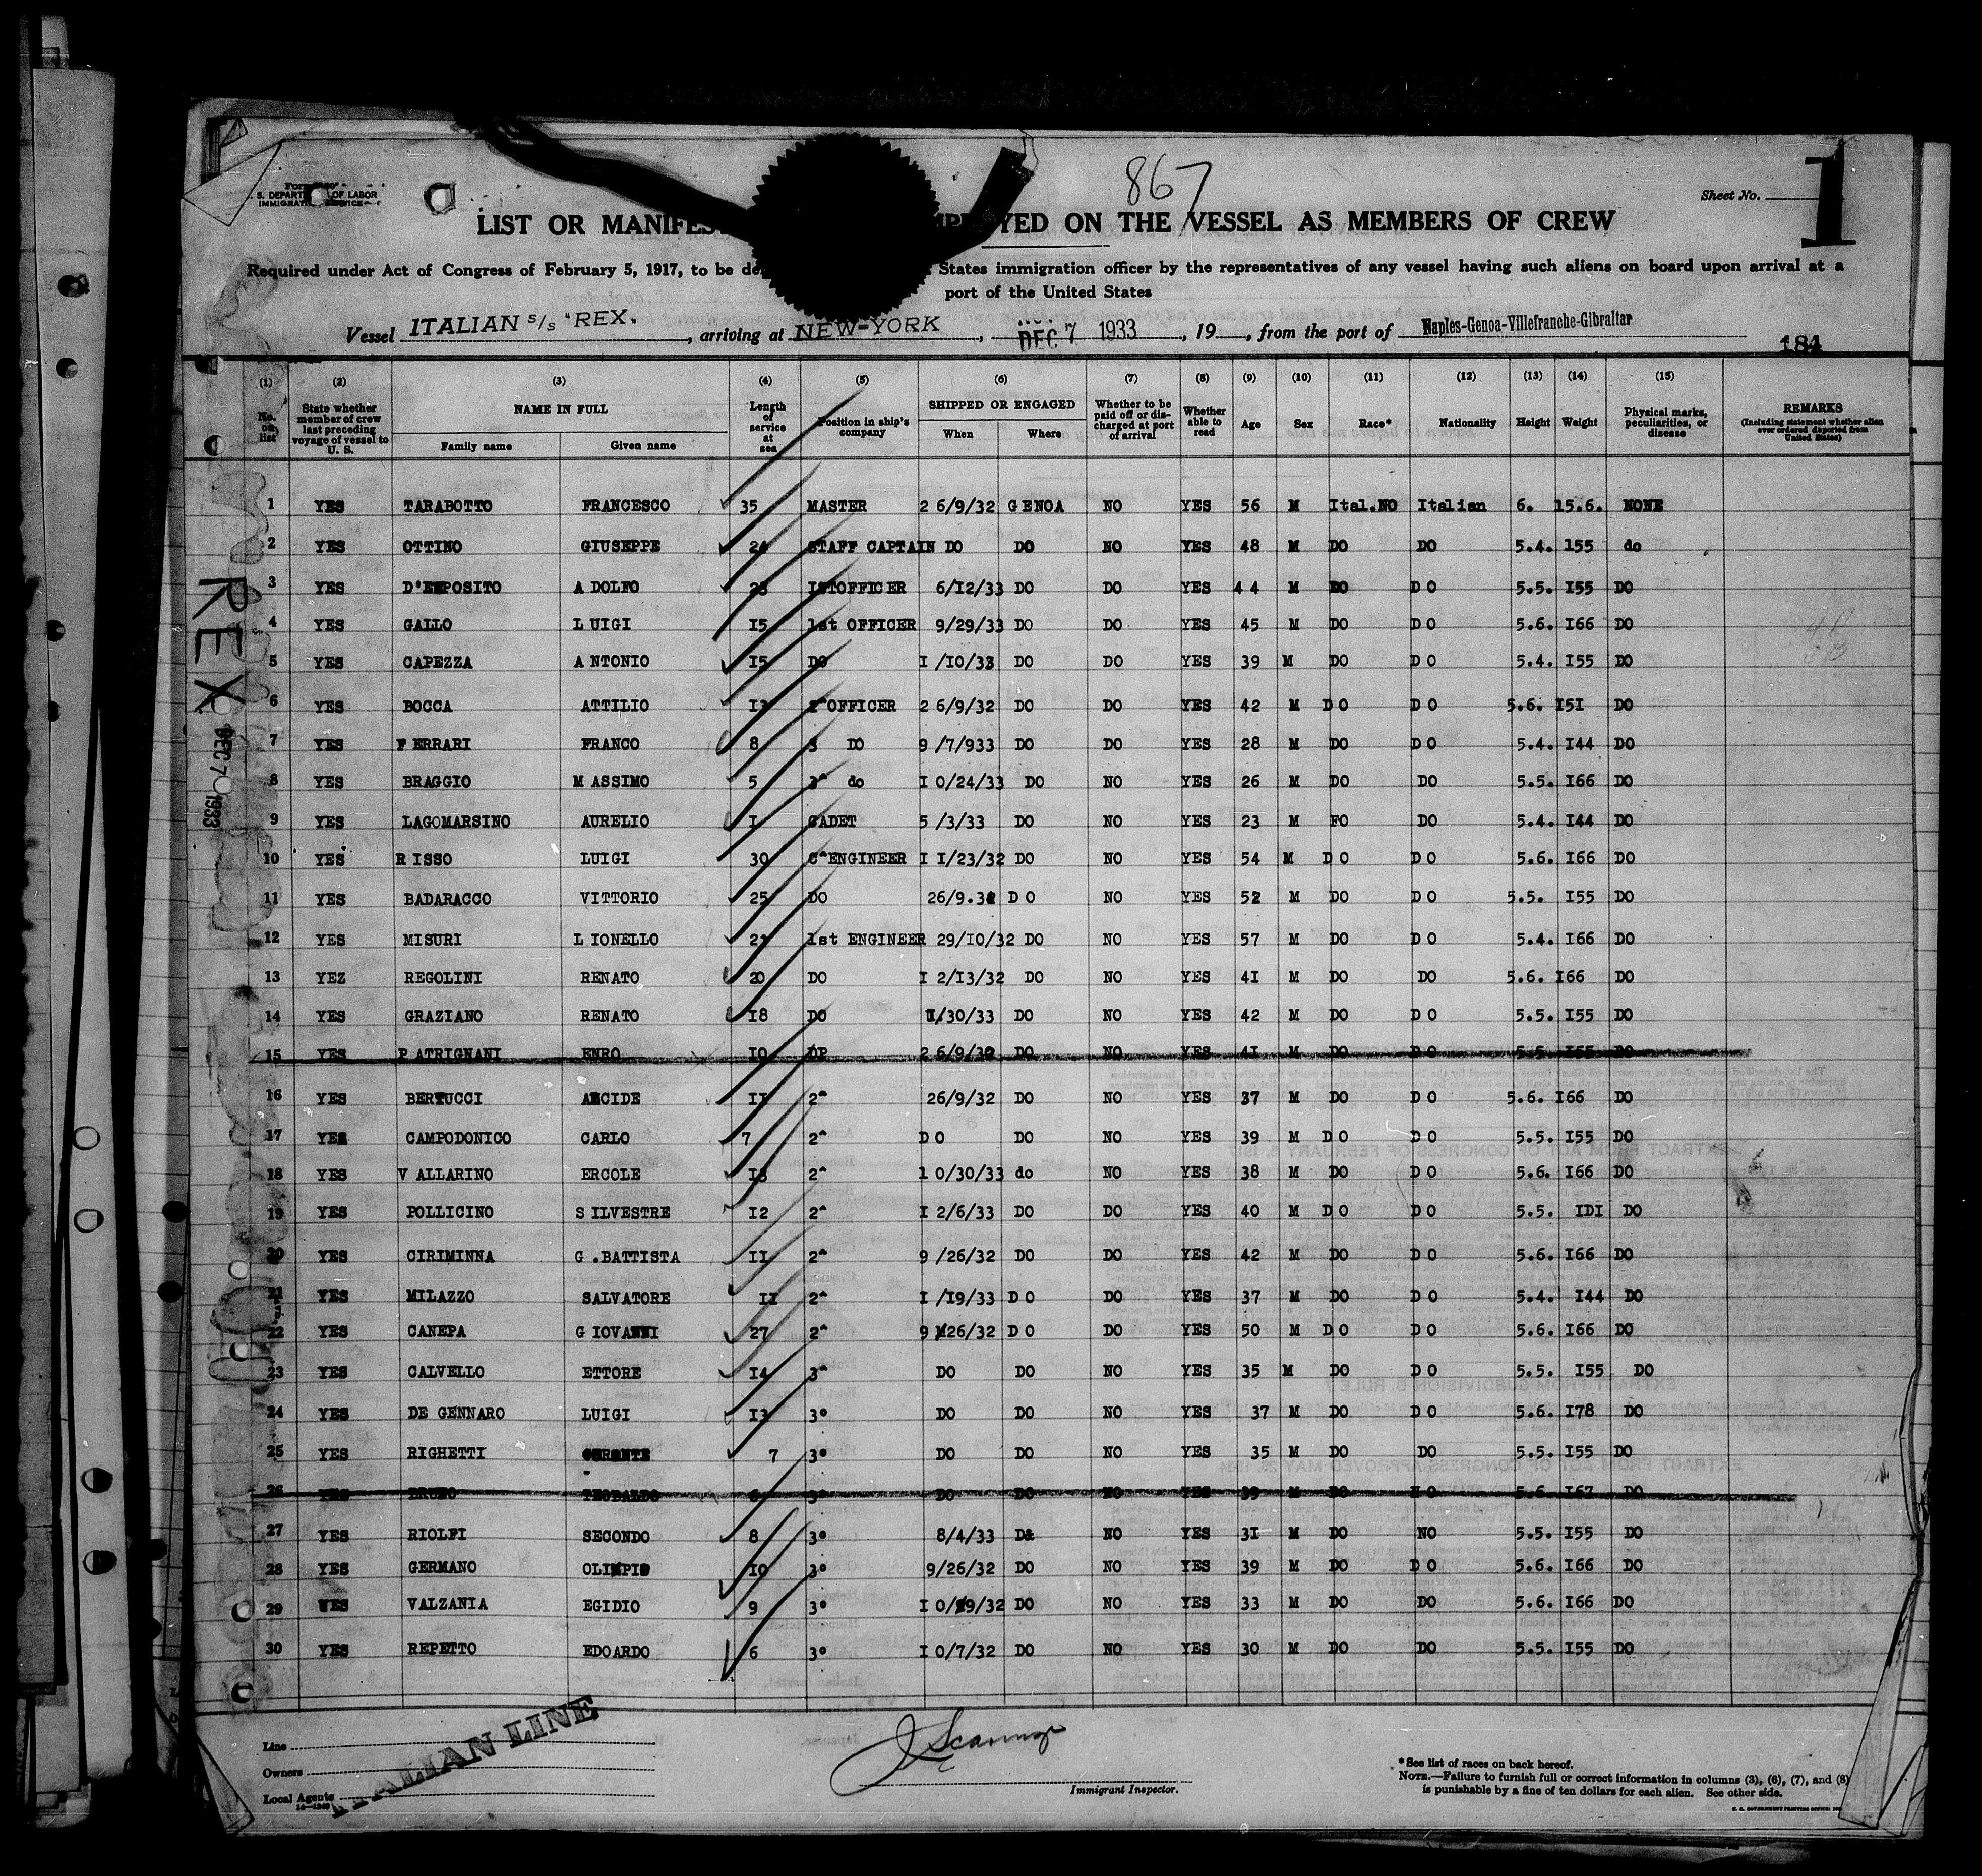 867
Sheet No. 1
S. DEPART OF LABOR
LIST OR MANIFES YED ON THE VESSEL AS MEMBERS OF CREW
Required under Act of Congress of February 5, 1917, to be de States immigration officer by the representatives of any vessel having such aliens on board upon arrival at a
port of the United States
Vessel ITALIAN s/s "REX. , arriving at NEW-YORK , DEC 7 1933 , 19 , from the port of Naples-Genoa-Villefranche-Gibraltar
184
(1) (2) (3) (4) (5) (6) (7) (8) (9) (10) (11) (12) (13) (14) (15)
No. on list State whether member of crew last preceding voyage of vessel to U. S. NAME IN FULL Family name Given name Length of service at sea Position in ship's company SHIPPED OR ENGAGED When Where Whether to be paid off or discharged at port of arrival Whether able to read Age Sex Race* Nationality Height Weight Physical marks, peculiarities, or disease REMARKS (Including statement whether alien ever ordered deported from United States)
1 YES TARABOTTO FRANCESCO 35 MASTER 2 6/9/32 GENOA NO YES 56 M Ital.NO Italian 6. 15.6. NONE
2 YES OTTINO GIUSEPPE 24 STAFF CAPTAIN DO DO NO YES 48 M DO DO 5.4. 155 do
3 YES ADOLFO ISTOFFICER 6/12/33 DO DO YES 44 M DO 5.5. I55 DO
4 YES GALLO LUIGI I5 1st OFFICER 9/29/33 DO DO YES 45 M DO DO 5.6. I66 DO
5 YES CAPEZZA ANTONIO I5 DO I /10/33 DO DO YES 39 M DO DO 5.4. I55 DO
6 YES BOCCA ATTILIO 2^OFFICER 2 6/9/32 DO DO YES 42 M DO DO 5.6. I5I DO
7 YES FERRARI FRANCO 8 3 DO 9 /7/933 DO DO YES 28 M DO DO 5.4. I44 DO
8 YES BRAGGIO MASSIMO 5 3^ do I 0/24/33 DO NO YES 26 M DO DO 5.5. I66 DO
9 YES LAGOMARSINO AURELIO I CADET 5 /3/33 DO NO YES 23 M FO DO 5.4. I44 DO
10 YES RISSO LUIGI 30 C^ENGINEER I I/23/32 DO NO YES 54 M DO DO 5.6. I66 DO
11 YES BADARACCO VITTORIO 25 DO 26/9.32 DO NO YES 52 M DO DO 5.5. I55 DO
12 YES MISURI LIONELLO 1st ENGINEER 29/IO/32 DO NO YES 57 M DO DO 5.4. I66 DO
13 YEZ REGOLINI RENATO 20 DO I 2/I3/32 DO NO YES 4I M DO DO 5.6. I66 DO
14 YES GRAZIANO RENATO I8 DO I/30/33 DO NO YES 42 M DO DO 5.5. I55 DO
15 YES PATRIGNANI ENRO IO DP 2 6/9/32 DO NO YES 4I M DO DO 5.5. I55 DO
16 YES BERTUCCI II 2^ 26/9/32 DO NO YES 37 M DO DO 5.6. I66 DO
17 YES CAMPODONICO CARLO 7 2^ DO DO NO YES 39 M DO DO 5.5. I55 DO
18 YES VALLARINO ERCOLE 2^ 1 0/30/33 do NO YES 38 M DO DO 5.6. I66 DO
19 YES POLLICINO SILVESTRE I2 2^ I 2/6/33 DO DO YES 40 M DO DO 5.5. IDI DO
20 YES CIRIMINNA G.BATTISTA II 2^ 9 /26/32 DO DO YES 42 M DO DO 5.6. I66 DO
21 YES MILAZZO SALVATORE II 2^ I /I9/33 DO DO YES 37 M DO DO 5.4. I44 DO
22 YES CANEPA GIOVANNI 27 2^ 9 /26/32 DO DO YES 50 M DO DO 5.6. I66 DO
23 YES CALVELLO ETTORE I4 3^ DO DO NO YES 35 M DO DO 5.5. I55 DO
24 YES DE GENNARO LUIGI I3 3° DO DO NO YES 37 M DO DO 5.6. I78 DO
25 YES RIGHETTI 7 3° DO DO NO YES 35 M DO DO 5.5. I55 DO
26 YES BRUNO TEOBALDO 6 3° DO DO NO YES 39 M DO 5.6. I67 DO
27 YES RIOLFI SECONDO 8 3° 8/4/33 NO YES 3I M DO NO 5.5. I55 DO
28 YES GERMANO OLIMPIO IO 3° 9/26/32 DO NO YES 39 M DO DO 5.6. I66 DO
29 YES VALZANIA EGIDIO 9 3° I 0/29/32 DO NO YES 33 M DO DO 5.6. I66 DO
30 YES REPETTO EDOARDO 6 3° I 0/7/32 DO NO YES 30 M DO DO 5.5. I55 DO
REX
DEC 7 1933
Line
Owners
Local Agents
ITALIAN LINE
Immigrant Inspector.
*See list of races on back hereof.
NOTE.—Failure to furnish full or correct information in columns (3), (6), (7), and (8)
is punishable by a fine of ten dollars for each alien. See other side.